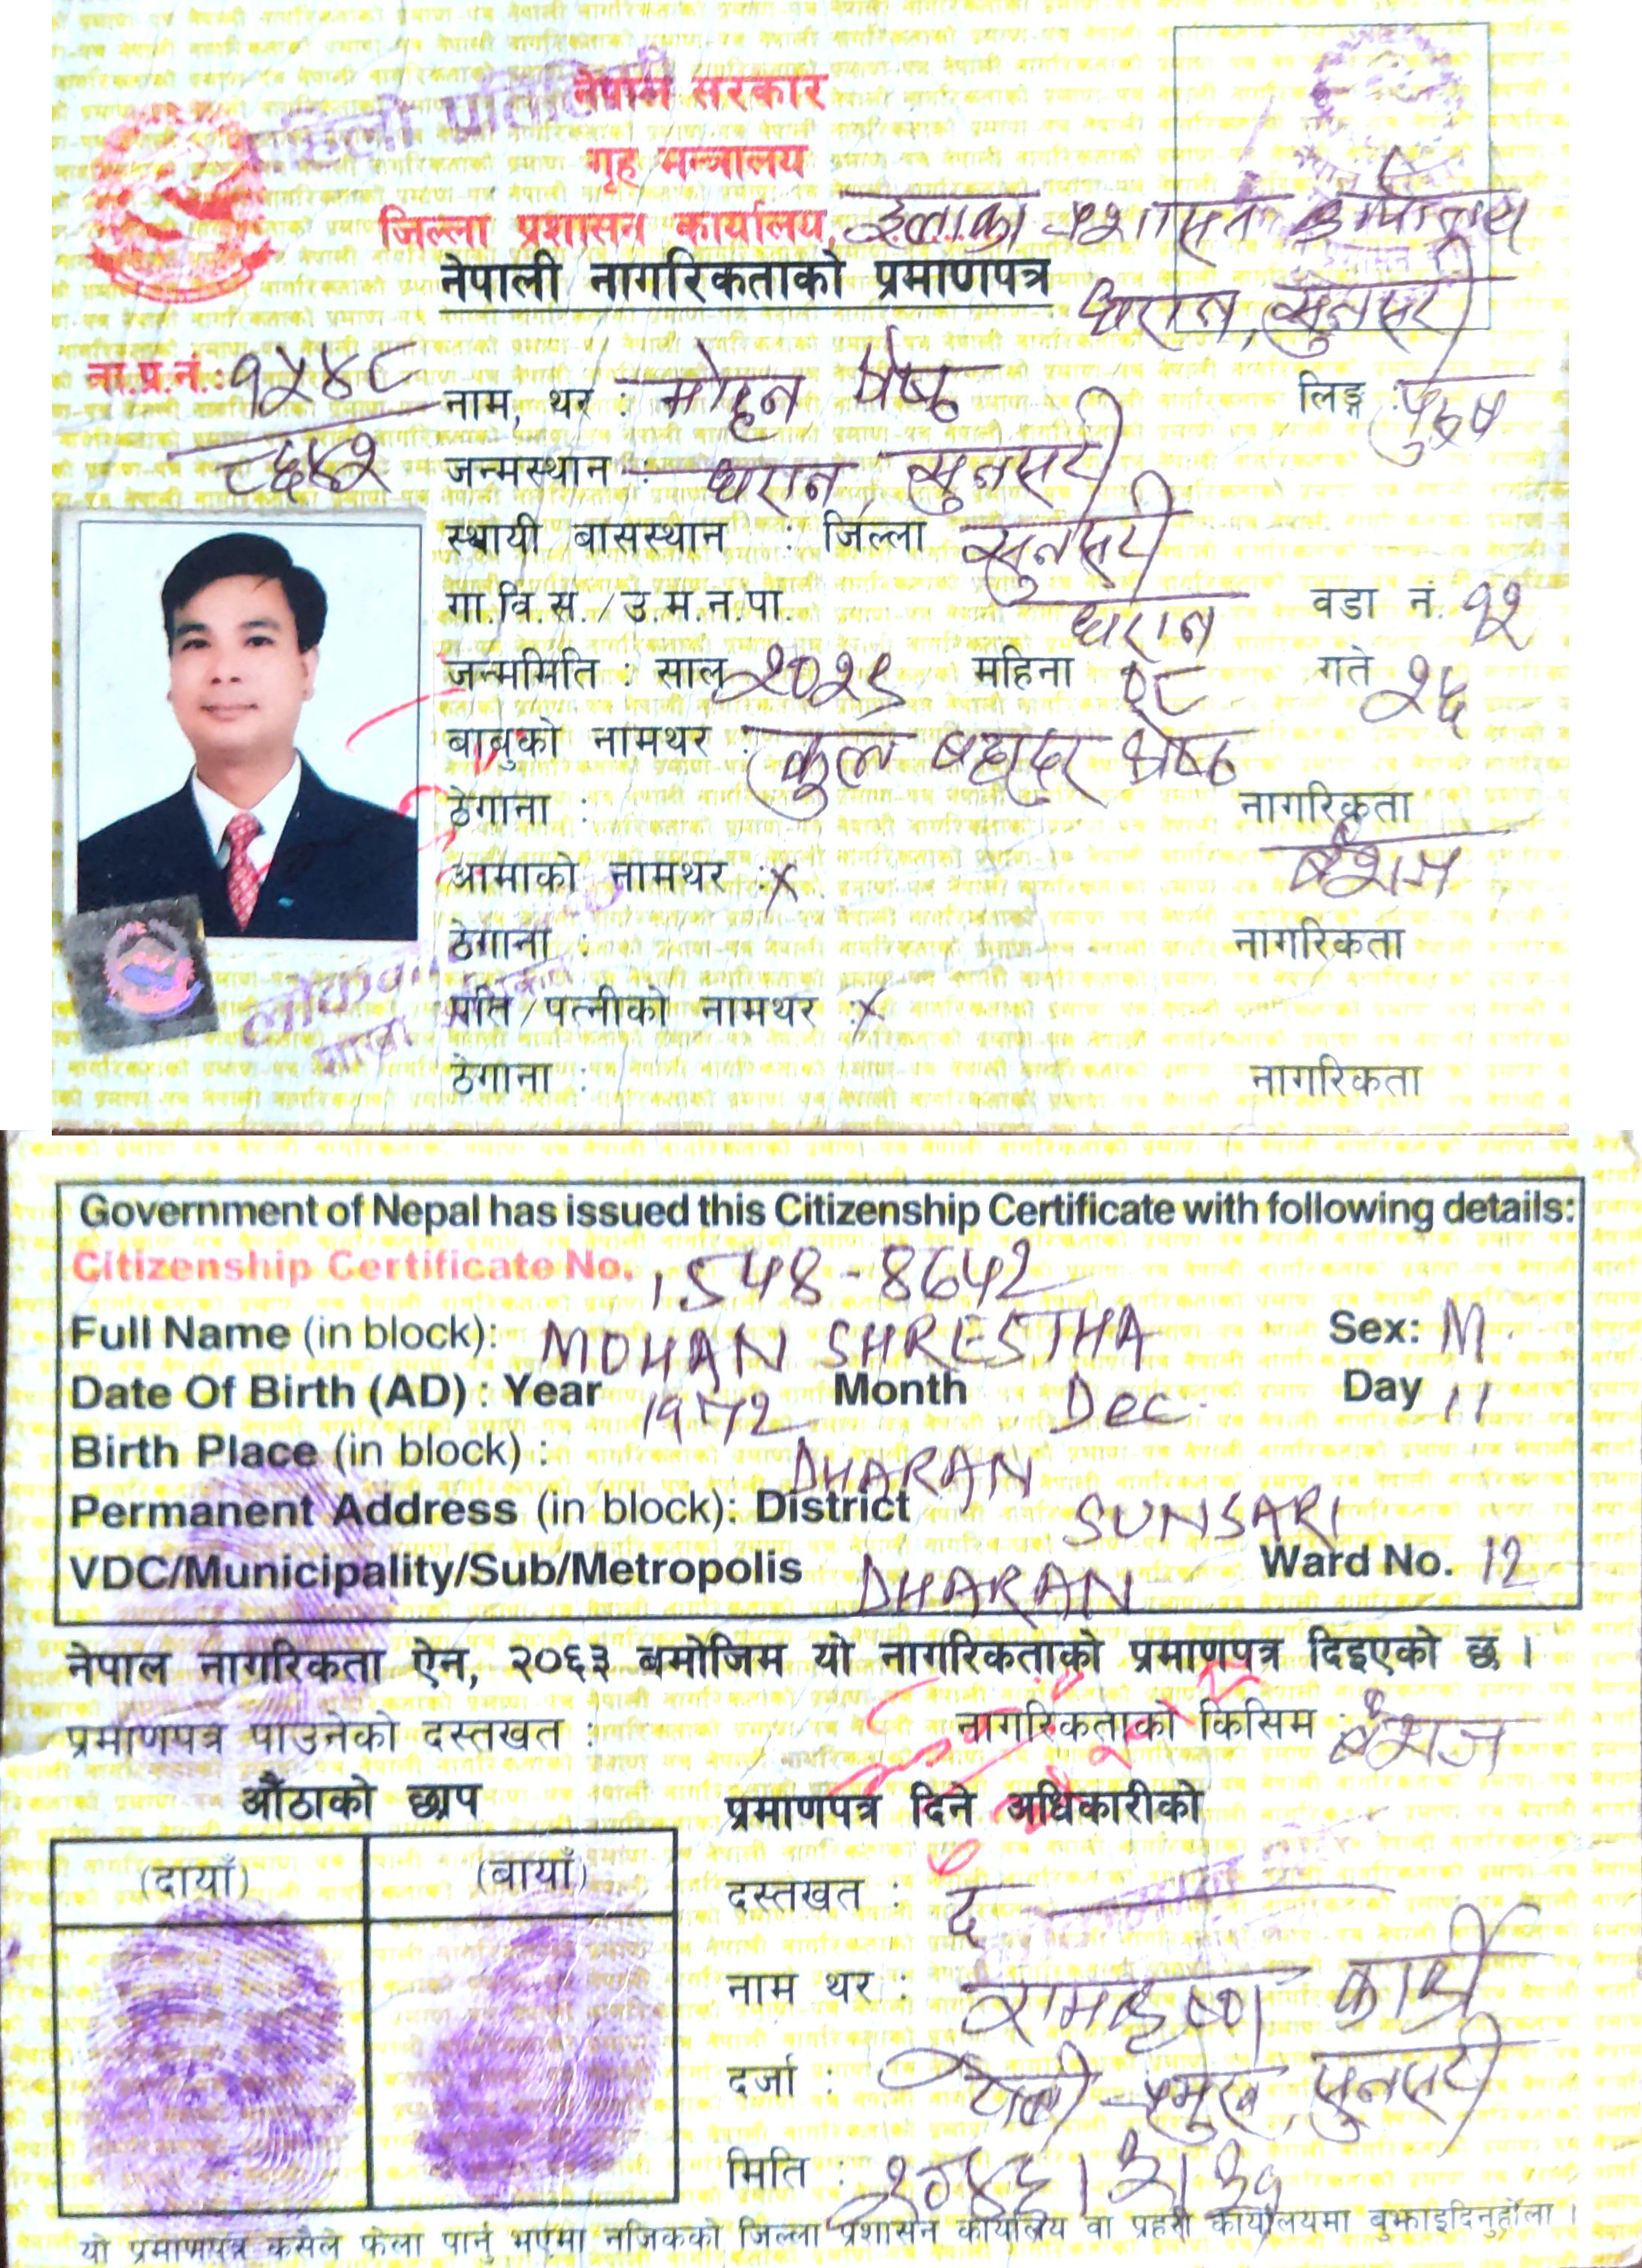 नेपाल सरकार
गृह मन्त्रालय
जिल्ला प्रशासन कार्यालय, इलाका प्रशासन कार्यालय
नेपाली नागरिकताको प्रमाणपत्र धरान, सुनसरी
ना.प्र.नं.: १५४८ नाम, थर : मोहन श्रेष्ठ लिङ्ग : पुरुष
८६४२ जन्मस्थान : धरान, सुनसरी
स्थायी बासस्थान : जिल्ला सुनसरी
गा.वि.स./उ.म.न.पा. धरान वडा नं. १२
जन्ममिति : साल २०२९ महिना ०८ गते २६
बाबुको नामथर : कुल बहादुर श्रेष्ठ
ठेगाना : नागरिकता
आमाको नामथर : x बंशज
ठेगाना : नागरिकता
पति/पत्नीको नामथर : x
ठेगाना : नागरिकता
Government of Nepal has issued this Citizenship Certificate with following details:
Citizenship Certificate No. 1548-8642
Full Name (in block): MOHAN SHRESTHA Sex: M.
Date Of Birth (AD) : Year 1972 Month Dec. Day 11
Birth Place (in block) : DHARAN
Permanent Address (in block): District SUNSARI
VDC/Municipality/Sub/Metropolis DHARAN Ward No. 12
नेपाल नागरिकता ऐन, २०६३ बमोजिम यो नागरिकताको प्रमाणपत्र दिइएको छ ।
प्रमाणपत्र पाउनेको दस्तखत : नागरिकताको किसिम : बंशज
औंठाको छाप प्रमाणपत्र दिने अधिकारीको
(दायाँ) (बायाँ) दस्तखत : द
नाम थर : रामकृष्ण कार्की
दर्जा : प्रमुख, सुनसरी
मिति :
यो प्रमाणपत्र कसैले फेला पार्नु भएमा नजिकको जिल्ला प्रशासन कार्यालय वा प्रहरी कार्यालयमा बुझाइदिनुहोला ।